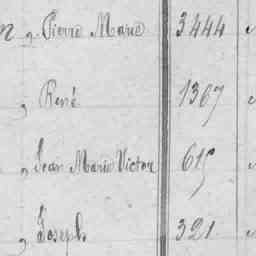 Pierre Marie 3444
, René 1367
, Jean Marie Victor 615
, Joseph 321